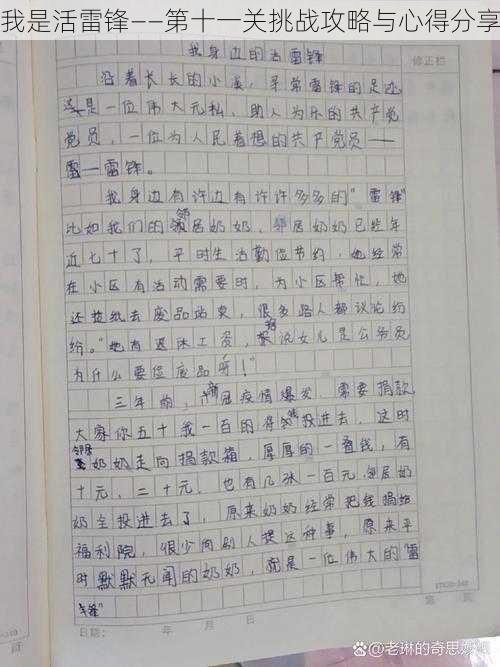 我是活雷锋——第十一关挑战攻略与心得分享
我身边的活雷锋
修正栏
沿着长长的小溪，寻常雷锋的足迹
是一位伟大无私、助人为乐的共产党
党员，一位为人民着想的共产党员——
雷一雷锋。
我身边有许边有许许多多的“雷锋”
比如我们的邻居奶奶，邻居奶奶已经年
近七十了，平时生活勤俭节约，她经常
在小区有活动需要时，为小区帮忙，她
还捡纸去废品站卖，很多路人都议论纷
纷。“她有退休工资，听说女儿是公务员
为什么要捡废品呀！”
三年前，新冠疫情爆发，需要捐款
大家你五十我一百的将钱投进去，这时
邻居奶奶走向捐款箱，厚厚的一叠钱，有
十元、二十元、也有几张一百元，邻居奶
奶全投进去了，原来奶奶经常把钱捐给
福利院，很少向别人提这种事，原来平
时默默无闻的奶奶，就是一位伟大的“雷
锋”
日期： 年 月 日
第 页
@老琳的奇思妙想